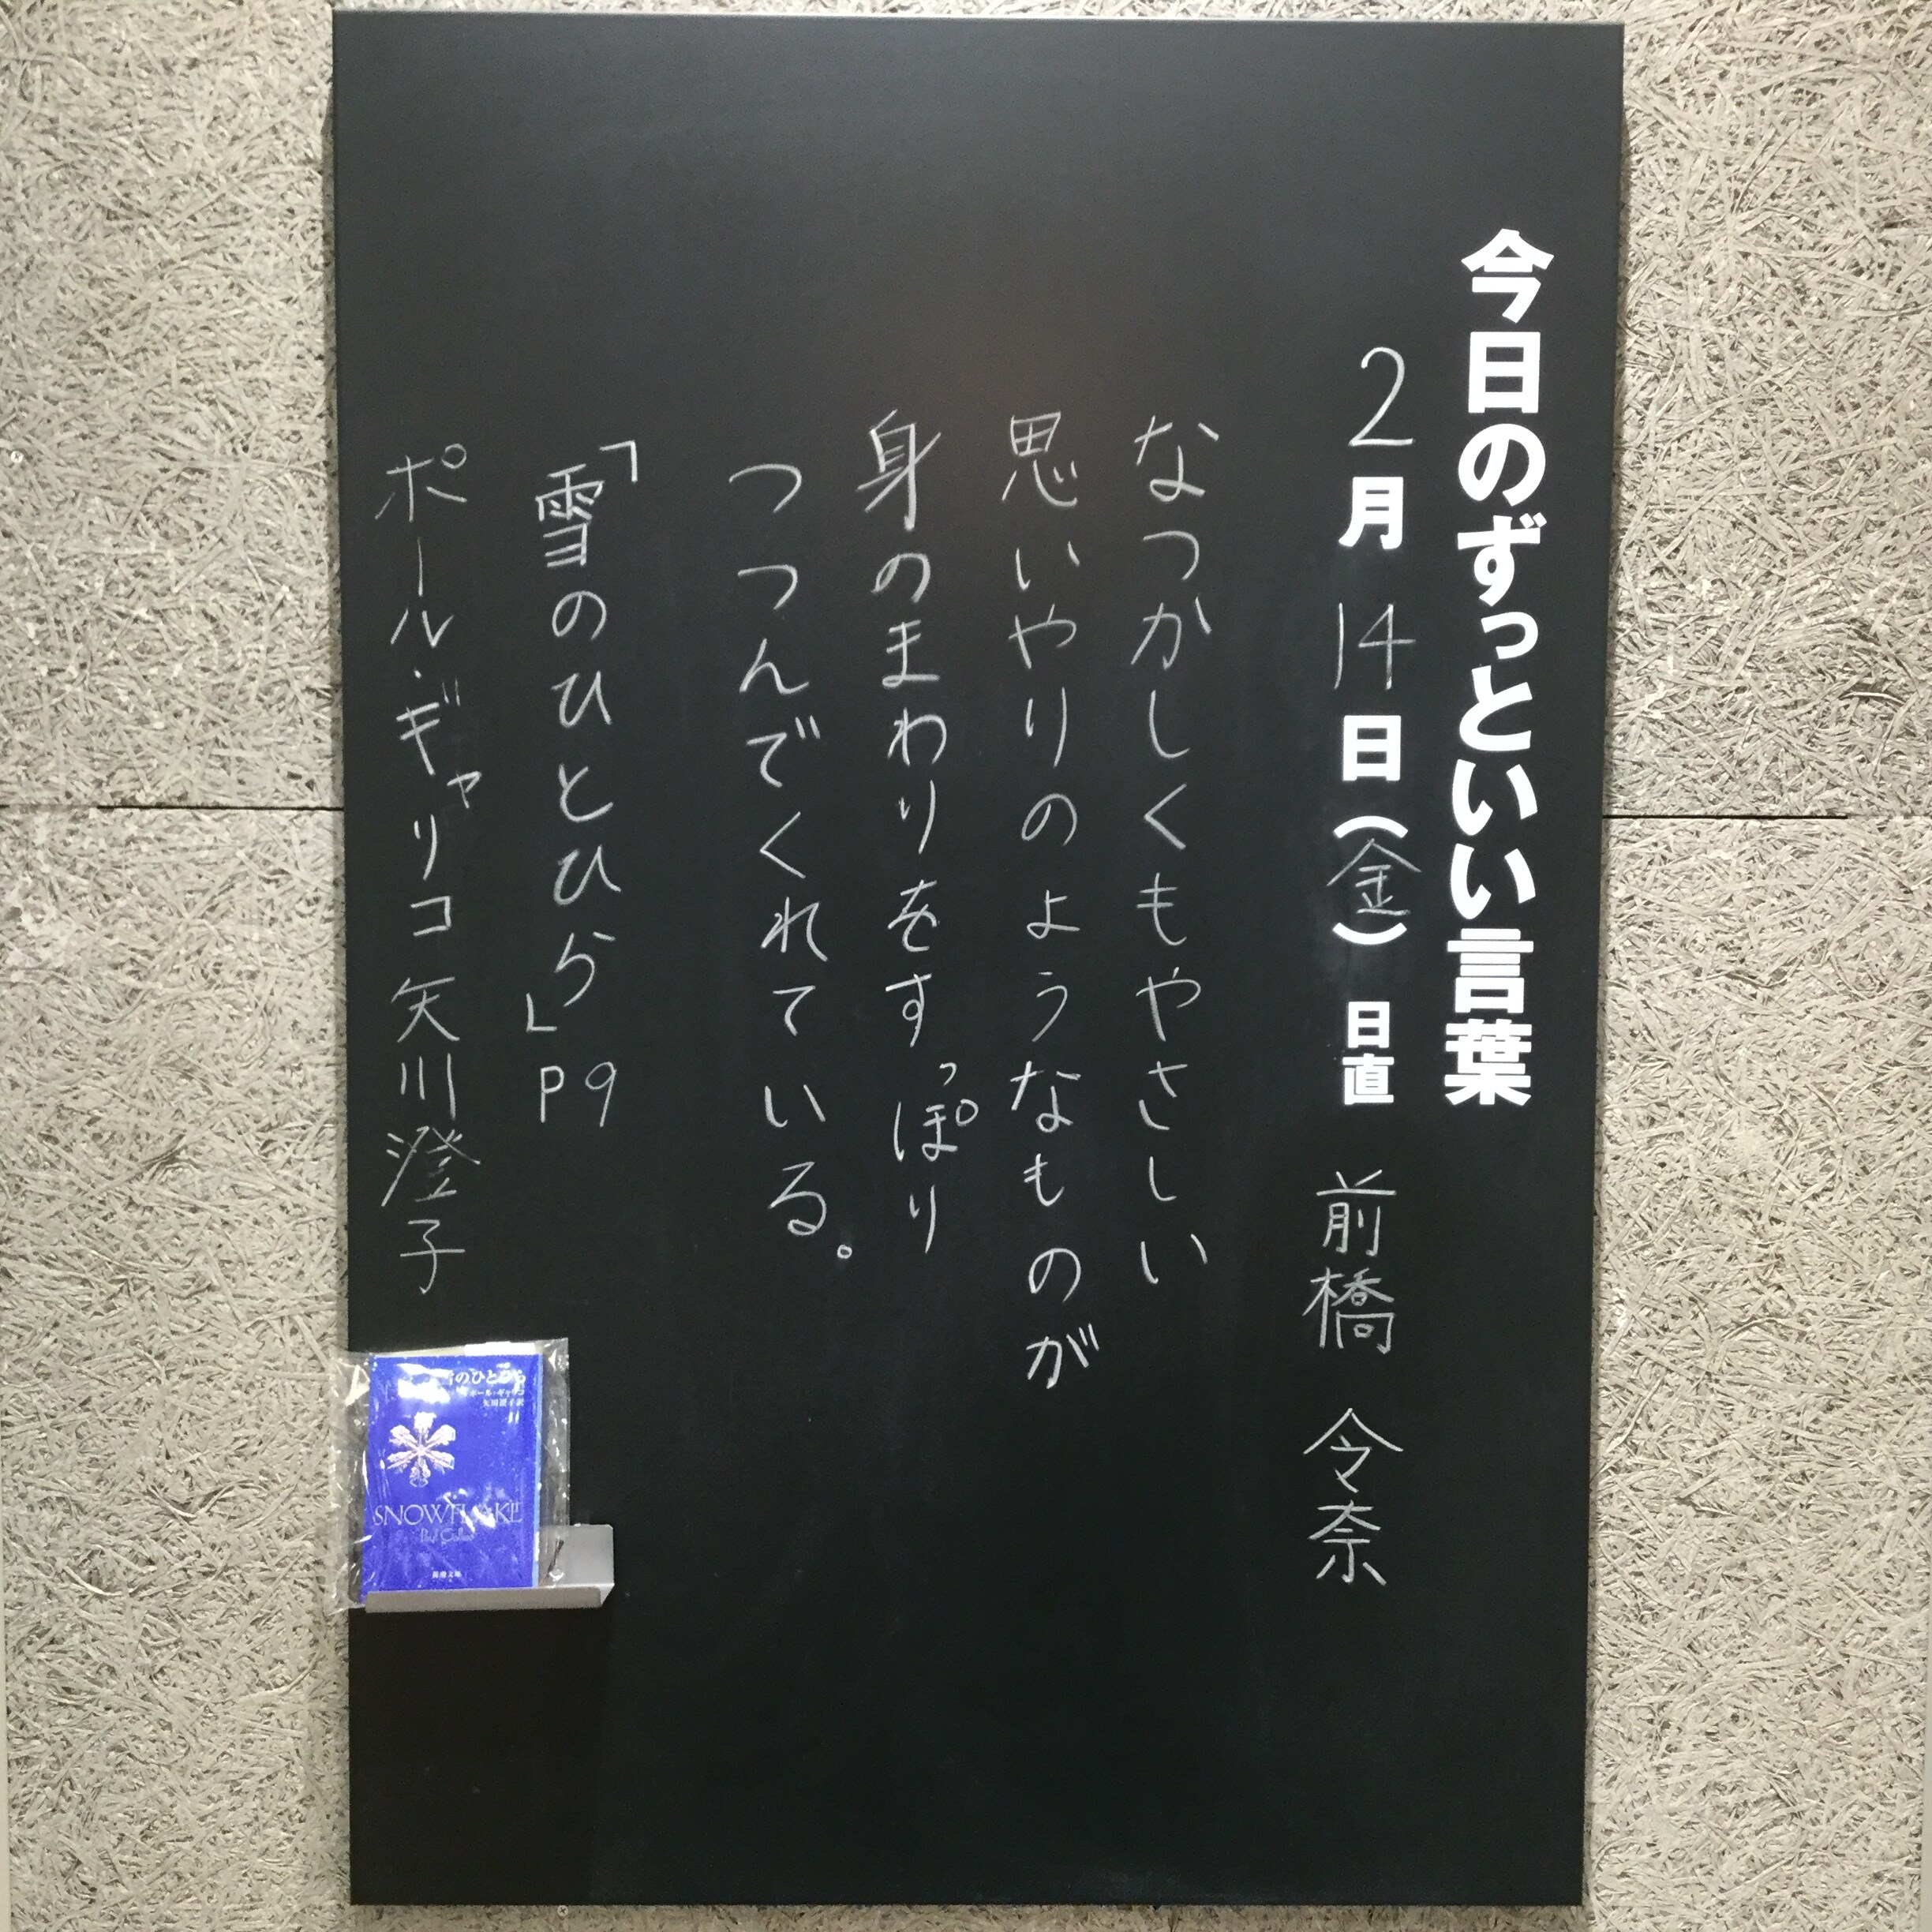 今日のずっといい言葉
2月14日(金) 日直 前橋 令奈
なつかしくもやさしい
思いやりのようなものが
身のまわりをすっぽり
つつんでくれている。
「雪のひとひら」P9
ポール・ギャリコ 矢川澄子
のひとひら
ポール・ギャリコ
矢川澄子訳
SNOWFLAKE
Paul Gallico
新潮文庫